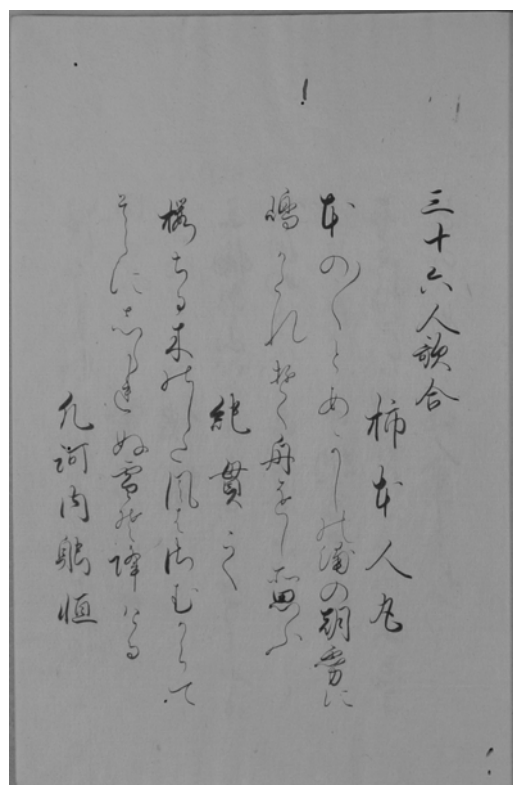 三十六人歌合
柿本人丸
本の〳〵とあかしの浦の朝霧に
嶋かくれ行舟をし思ふ
紀貫之
桜ちる木のした風はさむからて
そらにしられぬ雪そ降ける
凡河内躬恒